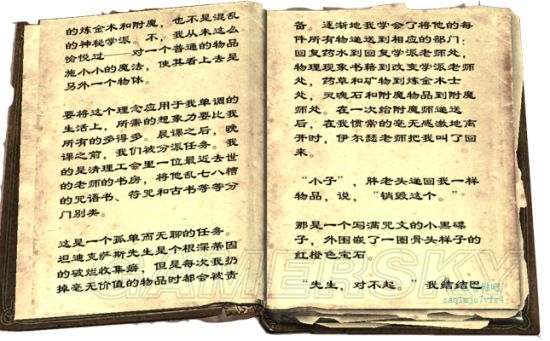 的炼金术和附魔，也不是混乱
的神秘学派。不，我从未这么
愉悦过——对一个普通的物品
施小小的魔法，使其看上去是
另外一个物体。
要将这个理念应用于我单调的
生活上，所需的想象力要比我
所有的多得多。晨课之后，晚
课之前，我们被分派任务。我
的是清理工会里一位最近去世
的老师的书房，将他乱七八糟
的咒语书、符咒和古书等等分
门别类。
这是一个孤单而无聊的任务。
坦迪克萨斯先生是个根深蒂固
的破烂收集癖，但是每次我扔
掉毫无价值的物品时都会被责
备。逐渐地我学会了将他的每
件所有物递送到相应的部门：
回复药水到回复学派老师处，
物理现象书籍到改变学派老师
处，药草和矿物到炼金术士
处，灵魂石和附魔物品到附魔
师处。在一次给附魔师递送
后，在我惯常的毫无感激地离
开时，伊尔瑟老师把我叫了回
来。
“小子”，胖老头递回我一样
物品，说，“销毁这个。”
那是一个写满咒文的小黑碟
子，外围嵌了一圈骨头样子的
红橙色宝石。
“先生，对不起。”我结结巴
GAMERSKY
zsq1mju7vfr4